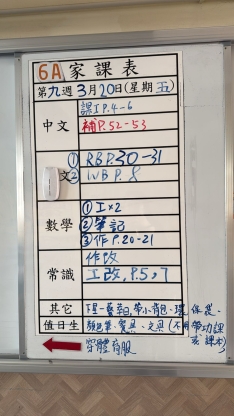 6A 家課表
第九週 3月20日(星期五)
中文
課工P.4-6
補P.52-53
文
① RBP.30-31
② WB P.8
數學
① 工×2
② 筆記
③ 作P.20-21
常識
作改
工改, P.5,7
其它
值日生
(不用帶功課
或課本)
穿體育服